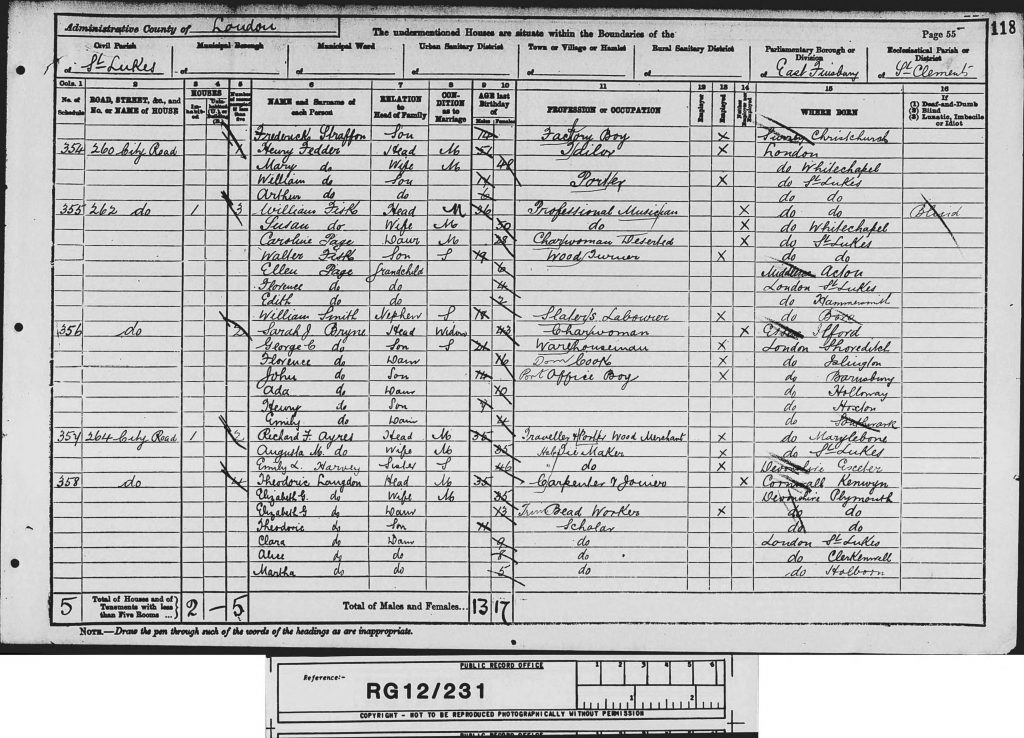 Administrative County of London
The undermentioned Houses are situate within the Boundaries of the
Page 55
118
Civil Parish
of St Lukes
Municipal Borough
of
Municipal Ward
of
Urban Sanitary District
of
Town or Village or Hamlet
of
Rural Sanitary District
of
Parliamentary Borough or Division
of East Finsbury
Ecclesiastical Parish or District
of St Clements
Cols. 1 2 3 4 5 6 7 8 9 10 11 12 13 14 15 16
No. of Schedule
ROAD, STREET, &c., and No. or NAME of HOUSE
HOUSES
NAME and Surname of each Person
RELATION to Head of Family
CONDITION as to Marriage
AGE last Birthday of
Males Females
PROFESSION or OCCUPATION
Employer
Employed
Neither Employer nor Employed
WHERE BORN
If
(1) Deaf-and-Dumb
(2) Blind
(3) Lunatic, Imbecile or Idiot
Frederick Straffon Son 14 Factory Boy X Surrey Christchurch
354 260 City Road Henry Fedder Head M 51 Tailor X London
Mary do Wife M 49 do Whitechapel
William do Son Porter X do St Lukes
Arthur do do do do
355 262 do 1 3 William Fisk Head M 36 Professional Musician X do do Blind
Susan do Wife M 50 do X do Whitechapel
Caroline Page Daur M 28 Charwoman Deserted X do St Lukes
Walter Fisk Son S 19 Wood Turner X do do
Ellen Page Grandchild 6 Middlesex Acton
Florence do do 4 London St Lukes
Edith do do 2 do Hammersmith
William Smith Nephew S Slater's Labourer X do Bow
356 do 2 Sarah J. Bryne Head Widow 43 Charwoman X Essex Ilford
George C do Son S 21 Warehouseman X London Shoreditch
Florence do Daur 16 Dom Cook X do Islington
John do Son 14 Post Office Boy X do Barnsbury
Ada do Daur 10 do Holloway
Henry do Son 9 do Hoxton
Emily do Daur 4 do Southwark
357 264 City Road 1 2 Richard F. Ayres Head M 35 Traveller Wood Merchant X do Marylebone
Augusta M. do Wife M 35 Maker X do St Lukes
Emily L. Harvey Sister S 46 " do X Devonshire Exeter
358 do 4 Theodoric Langdon Head M 35 Carpenter & Joiner X Cornwall Kenwyn
Elizabeth G. do Wife M 35 Devonshire Plymouth
Elizabeth G do Daur 13 Trim Bead Worker X do do
Theodoric do Son 11 Scholar do do
Clara do Daur 9 do London St Lukes
Alice do do 8 do do Clerkenwell
Martha do do 5 do do Holborn
5 Total of Houses and of Tenements with less than Five Rooms ... 2 – 5 Total of Males and Females... 13 17
NOTE.—Draw the pen through such of the words of the headings as are inappropriate.
PUBLIC RECORD OFFICE
1 2 3 4 5 6
Reference:-
RG12/231
1 2
COPYRIGHT - NOT TO BE REPRODUCED PHOTOGRAPHICALLY WITHOUT PERMISSION
PUBLIC RECORD OFFICE